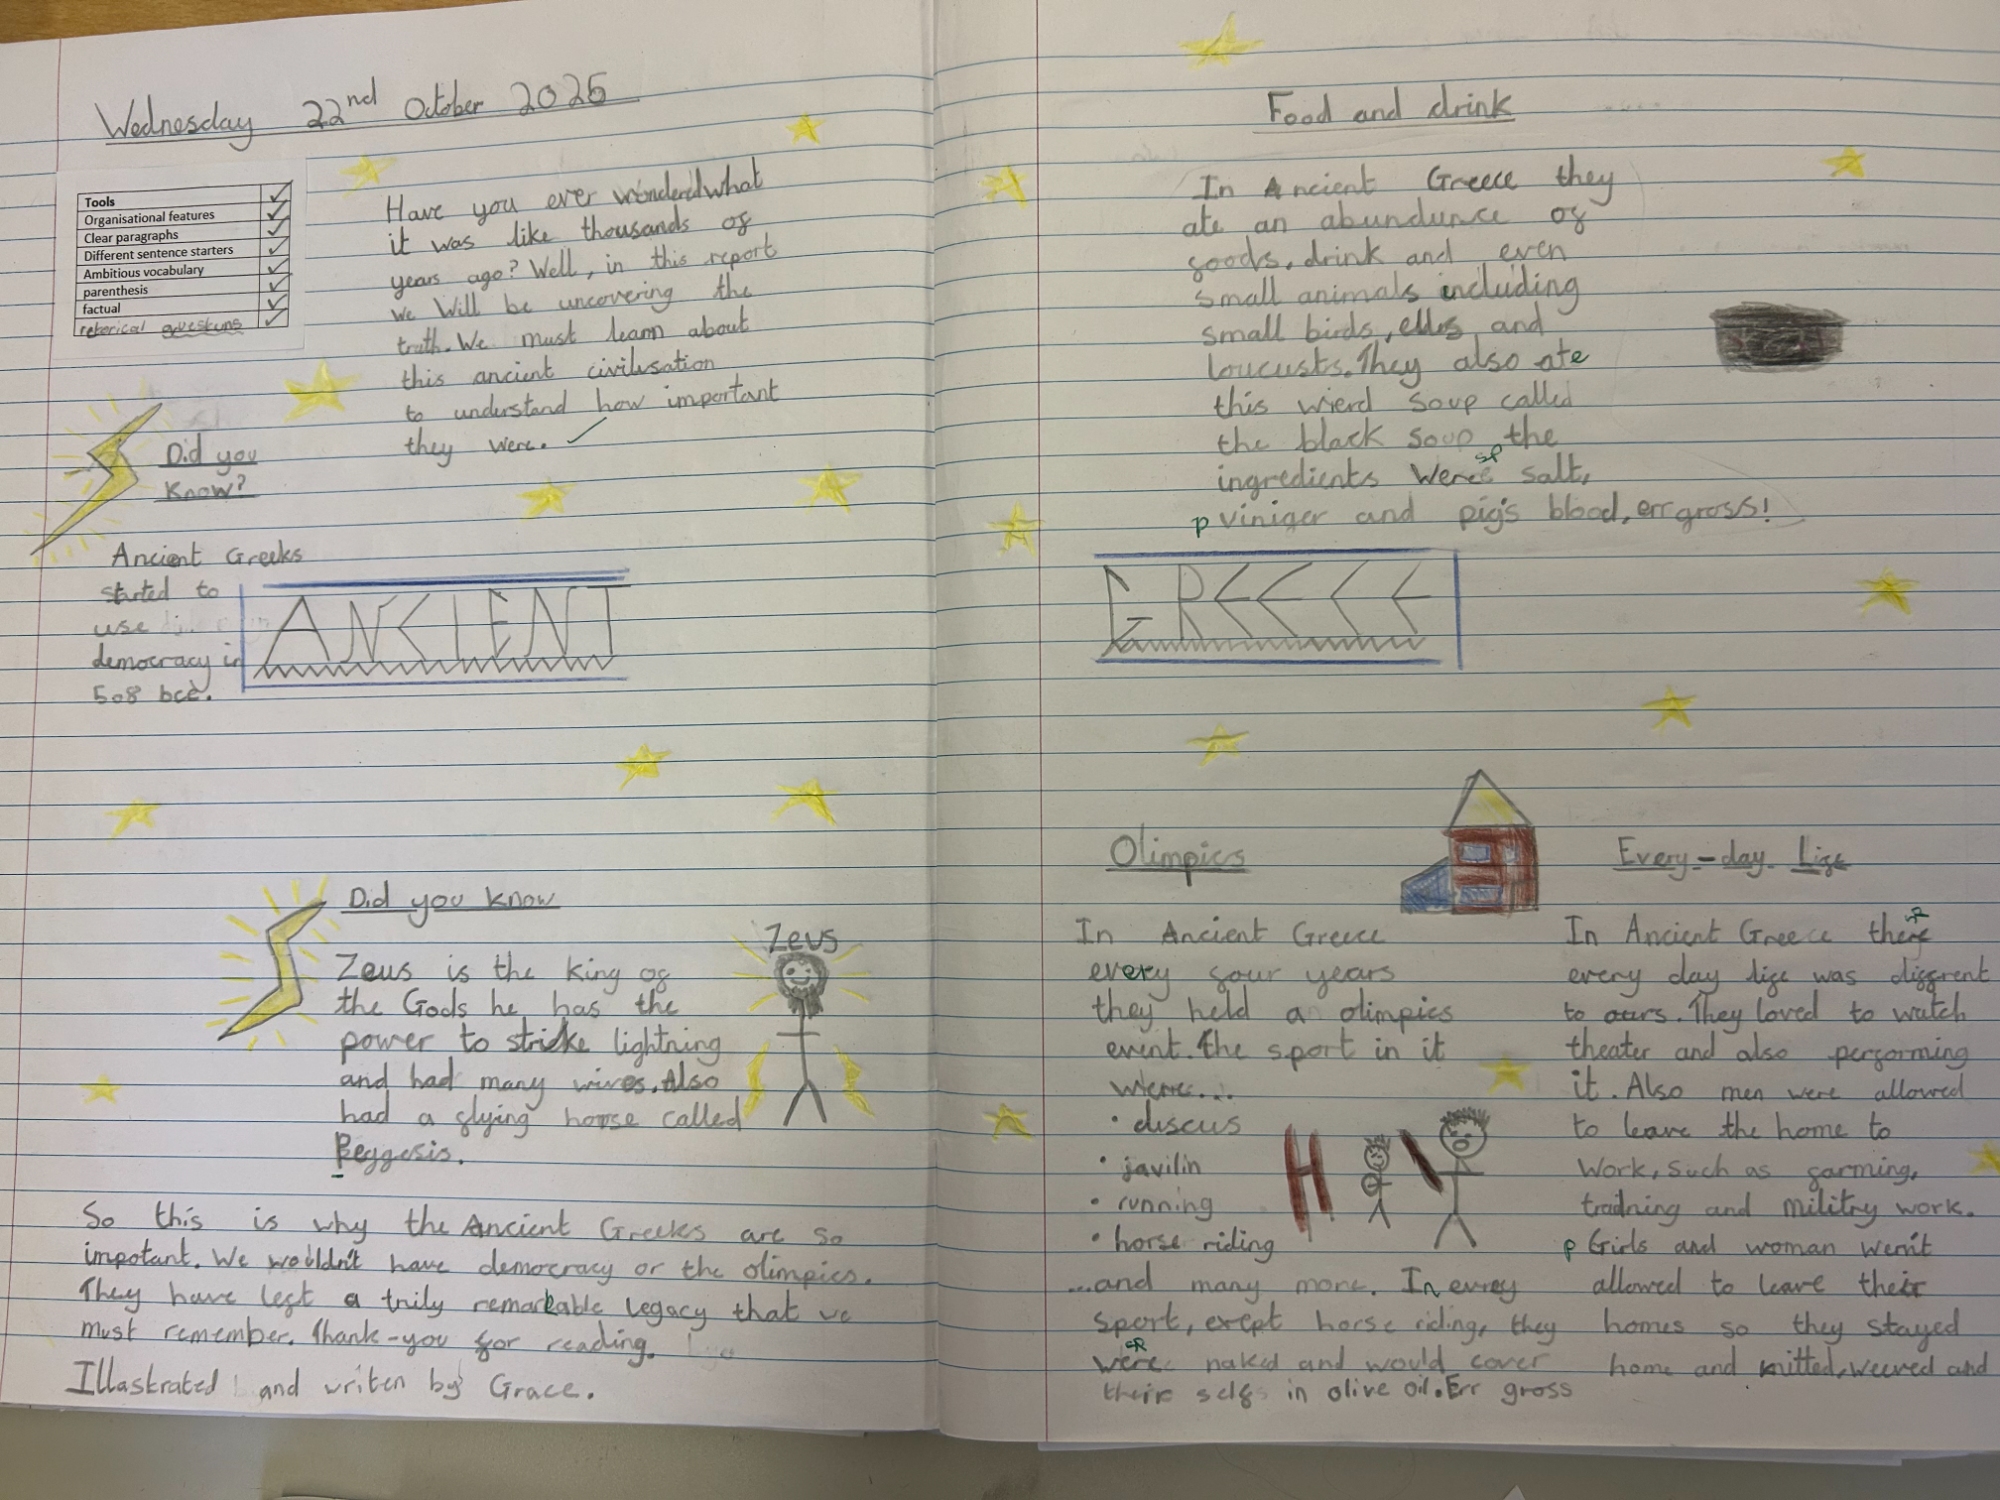 Wednesday 22nd October 2025
Tools ✓
Organisational features ✓
Clear paragraphs ✓
Different sentence starters ✓
Ambitious vocabulary ✓
parenthesis ✓
factual ✓
retorical questions ✓
Have you ever wondered what
it was like thousands of
years ago? Well, in this report
we will be uncovering the
truth. We must learn about
this ancient civilisation
to understand how important
they were. ✓
Did you
Know?
Ancient Greeks
started to
use
democracy in
508 bce.
ANCIENT
Did you know
Zeus is the king of
the Gods he has the
power to stricke lightning
and had many wives. Also
had a flying horse called
Peggesis.
Zeus
So this is why the Ancient Greeks are so
impotant. We wouldn't have democracy or the olimpics.
They have left a truly remarkable legacy that we
must remember. Thank-you for reading.
Illastrated and writen by Grace.
Food and drink
In Ancient Greece they
ate an abundunce of
foods, drink and even
small animals including
small birds, elles and
loucusts. They also ate
this wierd soup called
the black soup the
sp
ingredients were salt,
p viniger and pig's blood, err gross!
GREECE
Olimpics
In Ancient Greece
every four years
they held an olimpics
event. The sport in it
were...
• discus
• javilin
• running
• horse riding
...and many more. In evrey
sport, exept horse riding, they
sp
were naked and would cover
their selfs in olive oil. Err gross
Every-day Life
sp
In Ancient Greece there
every day life was diffrent
to ours. They loved to watch
theater and also performing
it. Also men were allowed
to leave the home to
work, such as farming,
tradning and militry work.
p Girls and woman wern't
allowed to leave their
homes so they stayed
home and knitted, weeved and